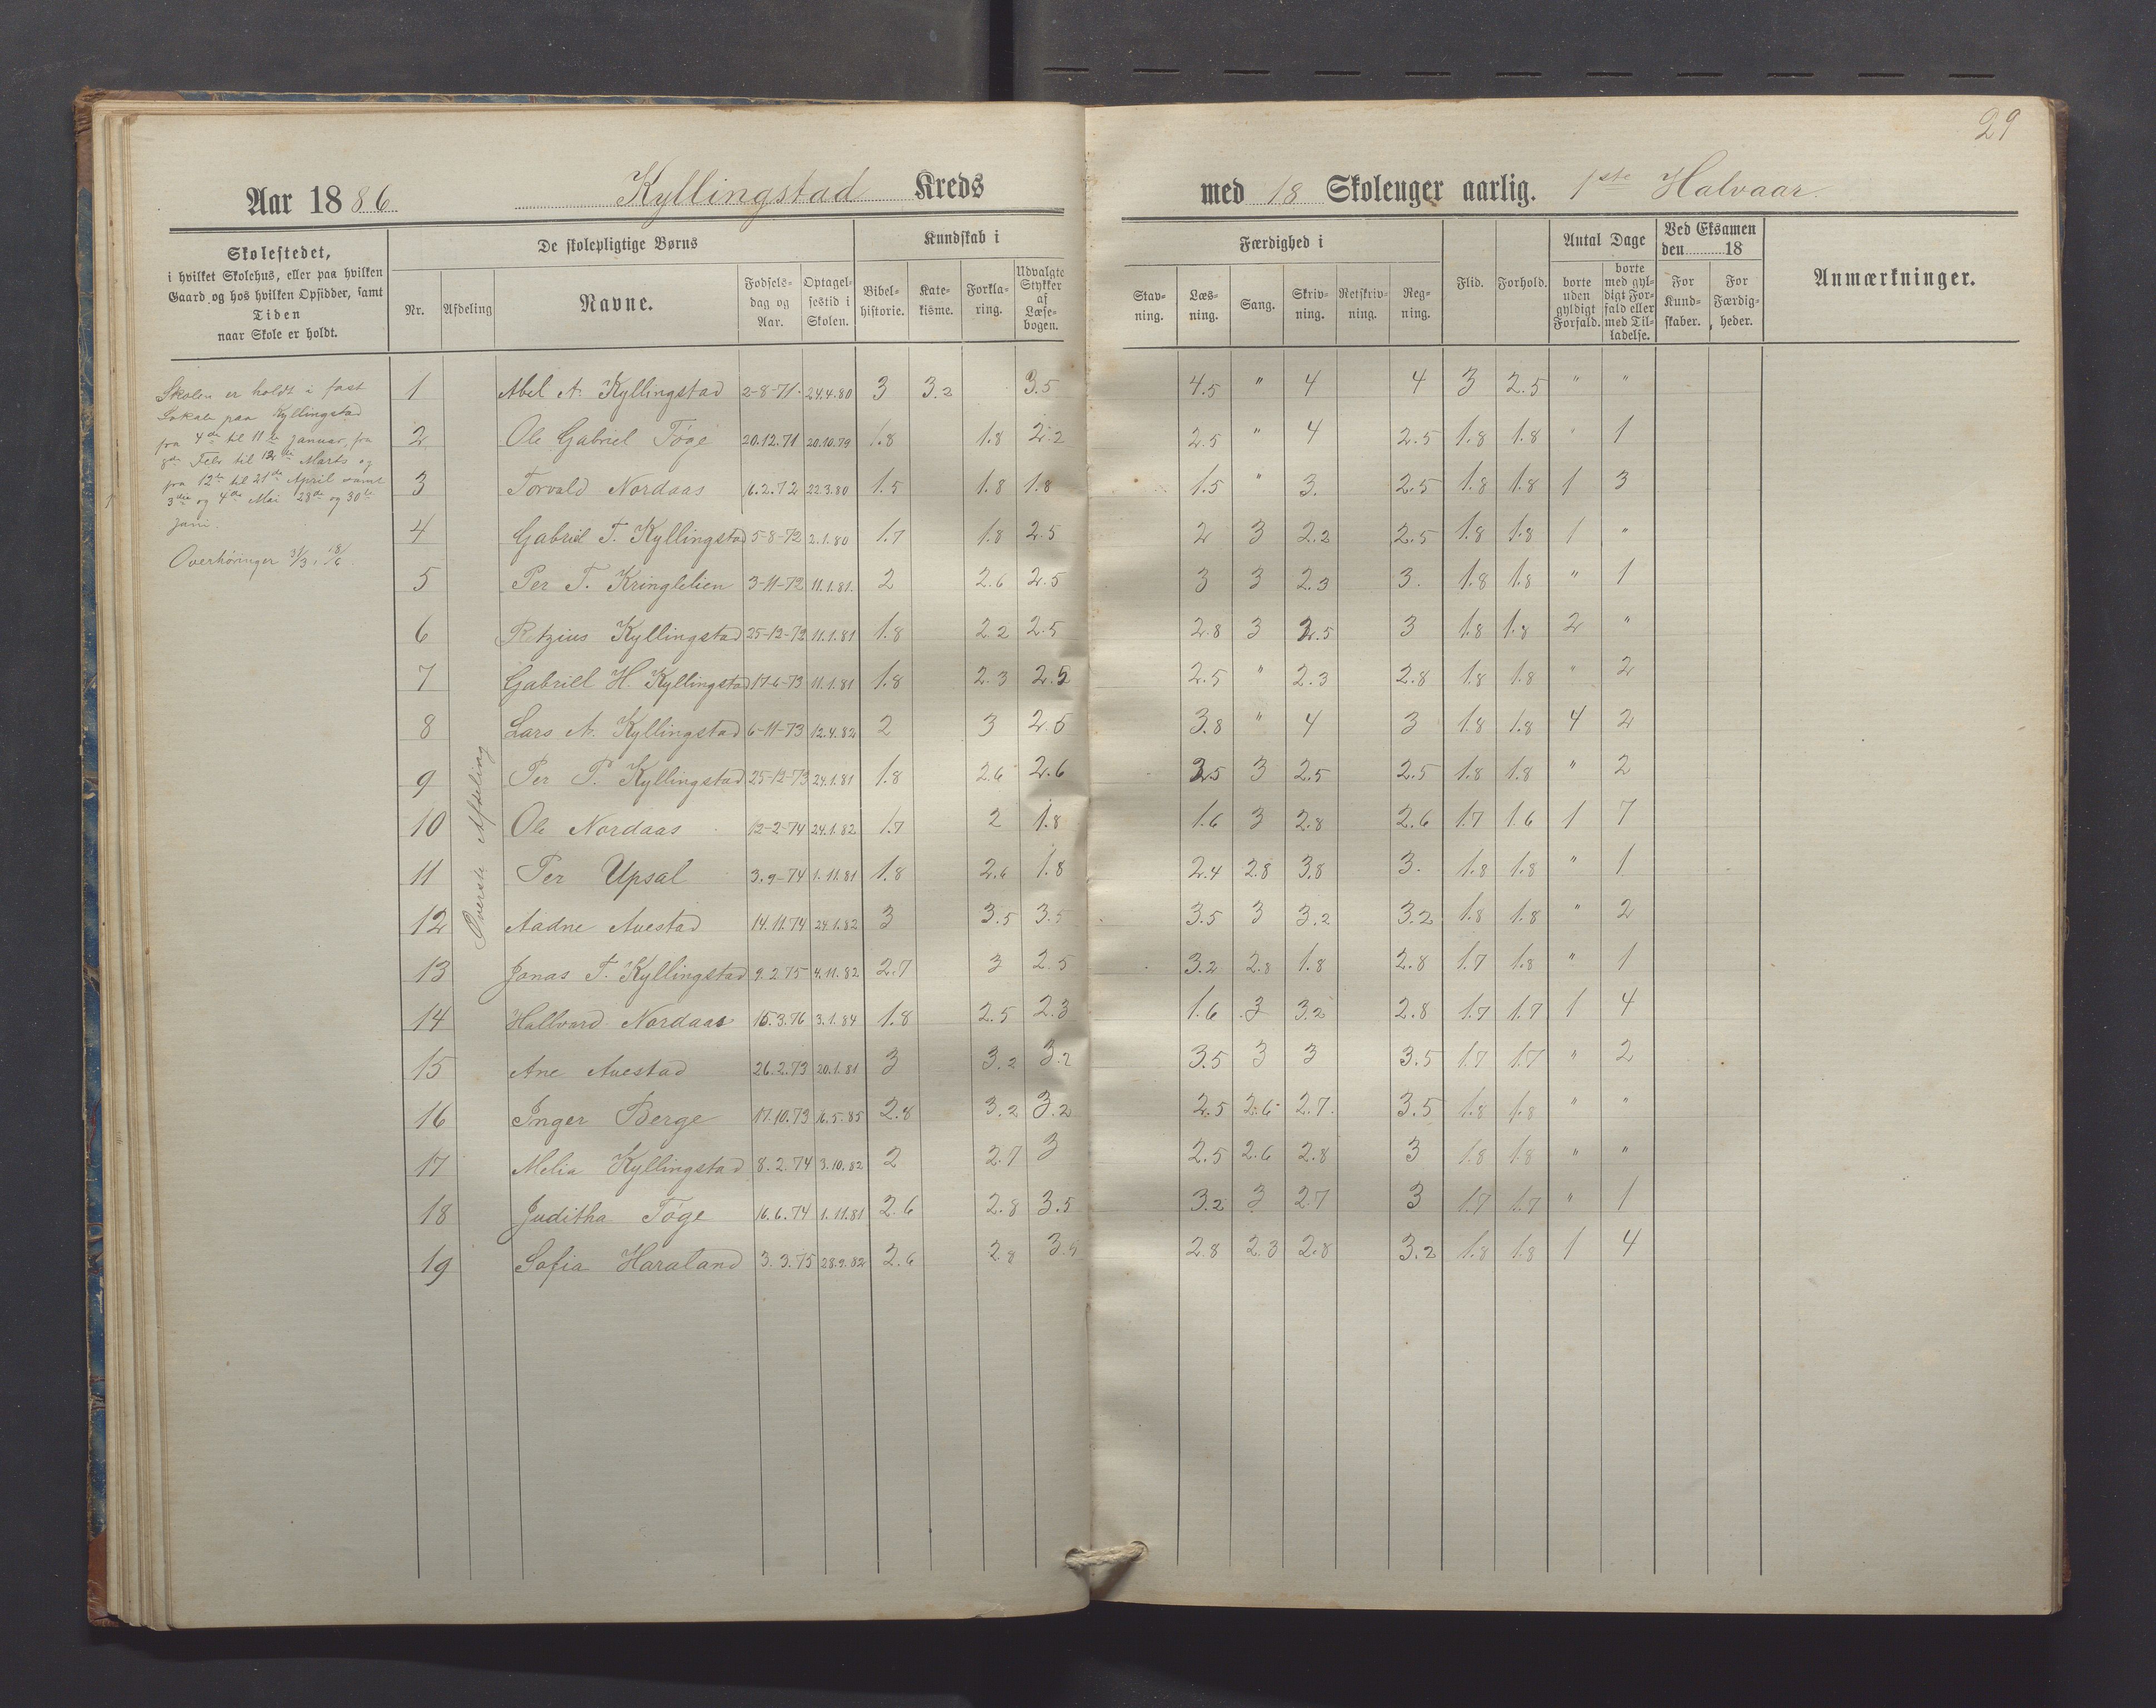 29
Aar 1886 Kyllingstad Kreds med 18 Skoleuger aarlig. 1ste Halvaar.
Skolestedet,
i hvilket Skolehus, eller paa hvilken
Gaard og hos hvilken Opsidder, samt
Tiden
naar Skole er holdt.
De skolepligtige Børns
Nr. Afdeling Navne. Fødsels-dag og Aar. Optagel-sestid i Skolen.
Kundskab i
Bibel-historie. Kate-kisme. Forkla-ring. Udvalgte Stykker af Læse-bogen.
Færdighed i
Stav-ning. Læs-ning. Sang. Skriv-ning. Retskriv-ning. Reg-ning.
Flid. Forhold.
Antal Dage
borte uden gyldigt Forfald. borte med gyl-digt For-fald eller med Til-ladelse.
Ved Eksamen
den 18
For Kund-skaber. For Færdig-heder.
Anmærkninger.
Skolen er holdt i fast
Lokale paa Kyllingstad
fra 4de til 11te Januar, fra
8de Febr til 12te Marts og
fra 12te til 21de April samt
3die og 4de Mai 28de og 30te
Juni.
Overhøringer 31/3, 18/6.
Øverste Afdeling
1 Abel A. Kyllingstad 2-8-71. 24.4.80 3 3.2 3.5 4.5 " 4 4 3 2.5 " "
2 Ole Gabriel Tøge 20.12.71 20.10.79 1.8 1.8 2.2 2.5 " 4 2.5 1.8 1.8 " 1
3 Torvald Nordaas 6.2.72 22.3.80 1.5 1.8 1.8 1.5 " 3. 2.5 1.8 1.8 1 3
4 Gabriel T. Kyllingstad 5-8-72 2.1.80 1.7 1.8 2.5 2 3 2.2 2.5 1.8 1.8 1 "
5 Per T. Kringlelien 3-11-72 11.1.81. 2 2.6 2.5 3 3 2.3 3. 1.8 1.8 " 1
6 Retzius Kyllingstad 25-12-72 11.1.81 1.8 2.2 2.5 2.8 3 2.5 3 1.8 1.8 2 "
7 Gabriel H. Kyllingstad 17-6-73 11.1.81 1.8 2.3 2.5 2.5 " 2.3 2.8 1.8 1.8 " 2
8 Lars A. Kyllingstad 6-11-73 12.4.82 2 3 2.5 3.8 " 4 3 1.8 1.8 4 2
9 Per P. Kyllingstad 25-12-73 24.1.81 1.8 2.6 2.6 2.5 3 2.5 2.5 1.8 1.8 " 2
10 Ole Nordaas 12-2-74 24.1.82 1.7 2 1.8 1.6 3 2.8 2.6 1.7 1.6 1 7
11 Per Upsal 3.9-74 1.11.81 1.8 2.6 1.8 2.4 2.8 3.8 3. 1.8 1.8 " 1
12 Aadne Auestad 14.11.74 24.1.82 3 3.5 3.5 3.5 3 3.2 3.2 1.8 1.8 " 2
13 Jonas T. Kyllingstad 9.2.75 4.11.82 2.7 3 2.5 3.2 2.8 1.8 2.8 1.7 1.8 " 1
14 Hallvard Nordaas 15.3.76 3.1.84 1.8 2.5 2.3 1.6 3 3.2 2.8 1.7 1.7 1 4
15 Ane Auestad 26.2.73 20.1.81 3 3.2 3.2 3.5 3 3 3.5 1.7 1.7 " 2
16 Inger Berge 17.10.73 16.5.85 2.8 3.2 3.2 2.5 2.6 2.7. 3.5 1.8 1.8 " "
17 Melia Kyllingstad 8.2.74 3.10.82 2 2.7 3 2.5 2.6 2.8 3 1.8 1.8 " "
18 Juditha Tøge 16.6.74 1.11.81 2.6 2.8 3.5 3.2 3 2.7 3 1.7 1.7 " 1
19 Sofia Haraland 3.3.75 28.9.82 2.6 2.8 3.5 2.8 2.3 2.8 3.2 1.8 1.8 1 4